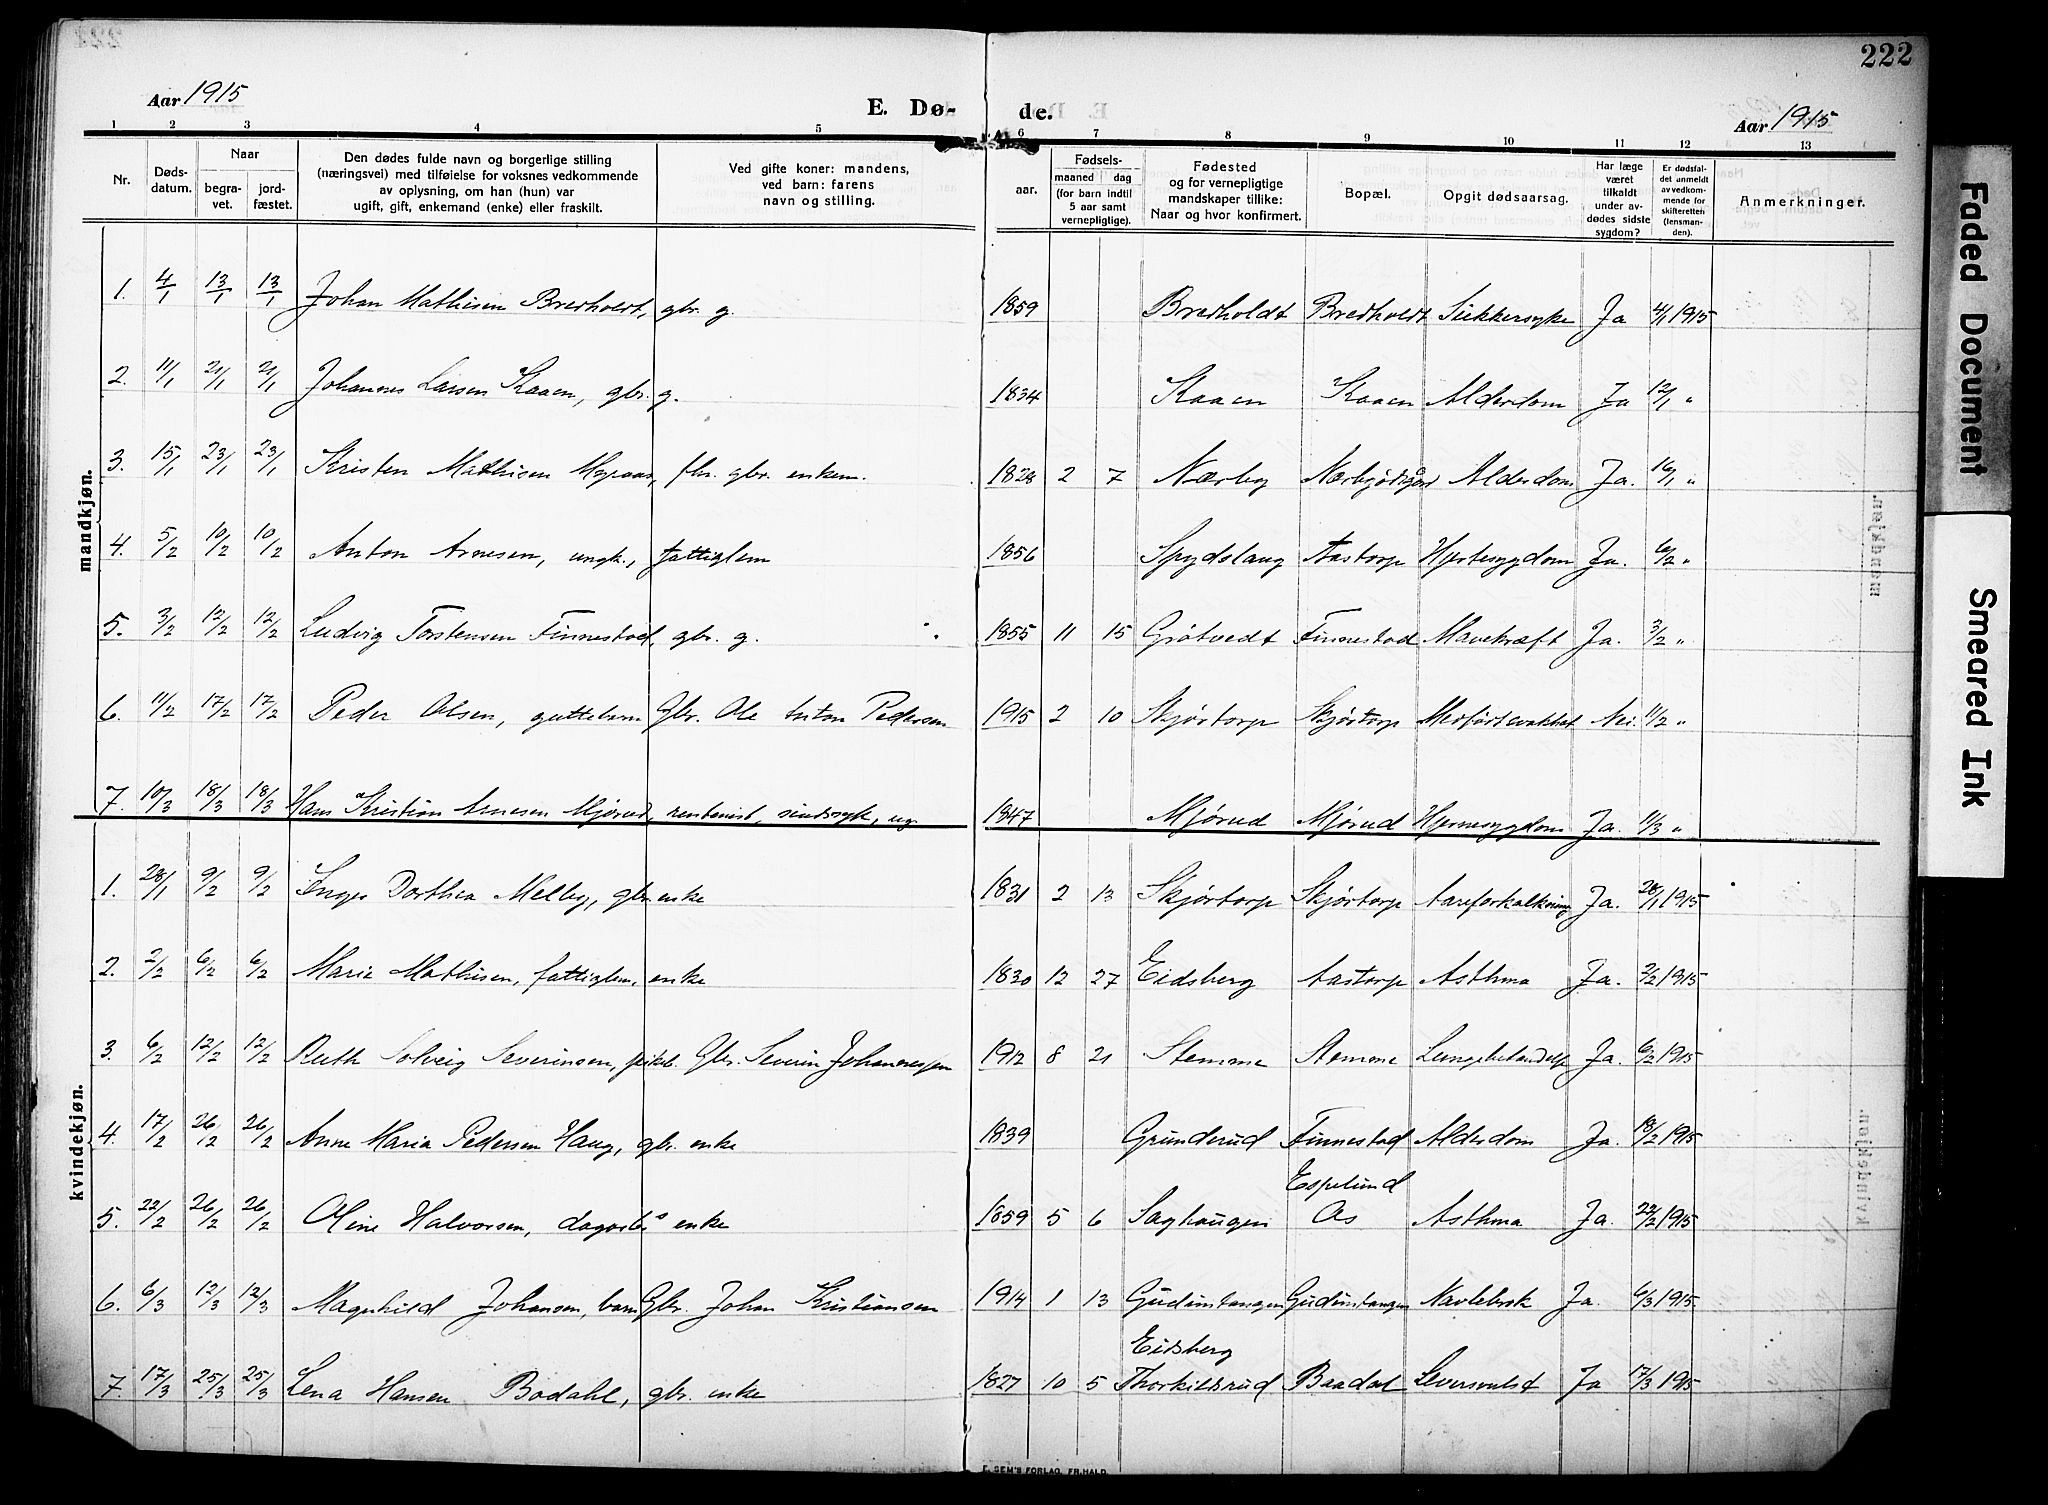 222
Aar 1915
E. Dø-
de.
Aar 1915
1 2 3 4 5 6 7 8 9 10 11 12 13
Nr.
Døds-
datum.
Naar
begra-
vet.
jord-
fæstet.
Den dødes fulde navn og borgerlige stilling
(næringsvei) med tilføielse for voksnes vedkommende
av oplysning, om han (hun) var
ugift, gift, enkemand (enke) eller fraskilt.
Ved gifte koner: mandens,
ved barn: farens
navn og stilling.
Fødsels-
aar.
maaned dag
(for barn indtil
5 aar samt
vernepligtige).
Fødested
og for vernepligtige
mandskaper tillike:
Naar og hvor konfirmert.
Bopæl.
Opgit dødsaarsag.
Har læge
været
tilkaldt
under av-
dødes sidste
sygdom?
Er dødsfal-
det anmeldt
av vedkom-
mende for
skifteretten
(lensman-
den).
Anmerkninger.
mandkjøn.
1. 4/1 13/1 13/1 Johan Mathisen Bredholdt, gbr. g. 1859 Bredholdt Bredholdt Sukkersyke Ja 4/1 1915
2. 11/1 21/1 21/1 Johannes Larsen Kaaen, gbr. g. 1834 Kaaen Kaaen Alderdom Ja 12/1 "
3. 15/1 23/1 23/1 Kristen Mathisen fhv. gbr. enkem. 1828 2 7 Nærby Alderdom Ja. 16/1 "
4. 5/2 10/2 10/2 Anton Arnesen, ungk., fattiglem 1856 Spydslaug Aastorp Hjertesygdom Ja. 6/2 "
5. 3/2 12/2 12/2 Ludvig Torstensen Finnestad, gbr. g. 1855 11 15 Grøtvedt Finnestad Mavekræft Ja. 3/2 "
6. 11/2 17/2 17/2 Peder Olsen, guttebarn Gbr. Ole Anton Pedersen 1915 2 10 Skjørtorp Skjørtorp Medfødt svakhet Nei. 11/2 "
7. 10/3 18/3 18/3 Hans Kristian Arnesen Mjørud, rentenist, sindssyk, ug. 1847 Mjørud Mjørud Hjernesygdom Ja. 11/3 "
kvindekjøn.
1. 28/1 9/2 9/2 Inger Dorthea Melleby, gbr. enke 1831 2 13 Skjørtorp Skjørtorp Aareforkalkning Ja. 28/1 1915
2. 2/2 6/2 6/2 Maria Mathisen, fattiglem, enke 1830 12 27 Eidsberg Aastorp Asthma Ja. 2/2 1915
3. 6/2 12/2 12/2 Ruth Solveig Severinsen, pikeb. Gbr. Severin Johannessen 1912 8 21 Stemme Stemme Lungebetændelse Ja. 6/2 1915
4. 17/2 26/2 26/2 Anne Maria Pedersen Haug, gbr. enke 1839 Grunderud Finnestad Alderdom Ja. 18/2 1915
Espelund
5. 22/2 26/2 26/2 Oline Halvorsen, dagarb.s enke 1859 5 6 Saghaugen As Asthma Ja 22/2 1915
6. 6/3 12/3 12/3 Magnhild Johansen, barn Gbr. Johan Kristiansen 1914 1 13 Gudimtangen Gudimtangen Navlebrok Ja. 6/3 1915.
Eidsberg
7. 17/3 25/3 25/3 Lena Hansen Bodahl, gbr. enke 1827 10 5 Thorkilsrud Baadal Leversvulst Ja 17/3 1915
E. SEM'S FORLAG, FR.HALD.
Faded Document
Smeared Ink